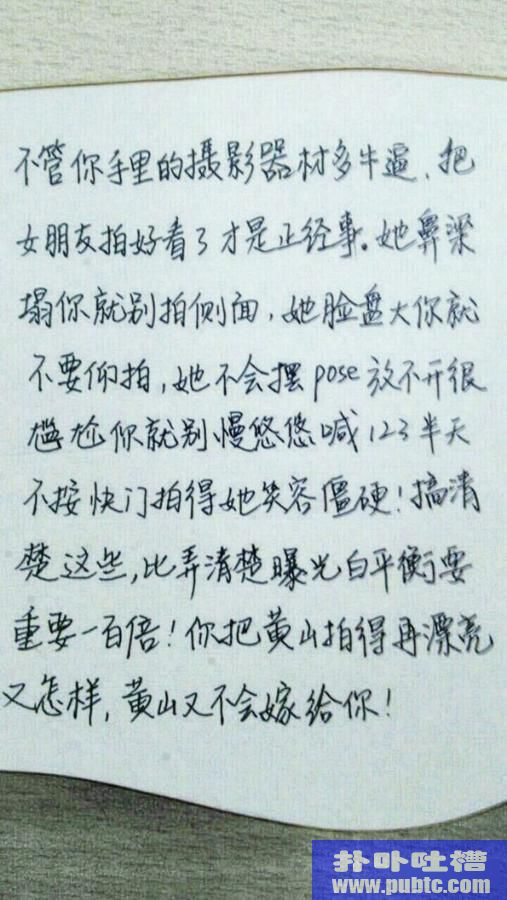 不管你手里的摄影器材多牛逼、把
女朋友拍好看了才是正经事。她鼻梁
塌你就别拍侧面，她脸盘大你就
不要仰拍，她不会摆pose放不开很
尴尬你就别慢悠悠喊123半天
不按快门拍得她笑容僵硬！搞清
楚这些，比弄清楚曝光白平衡要
重要一百倍！你把黄山拍得再漂亮
又怎样，黄山又不会嫁给你！
扑卟吐槽
www.pubtc.com